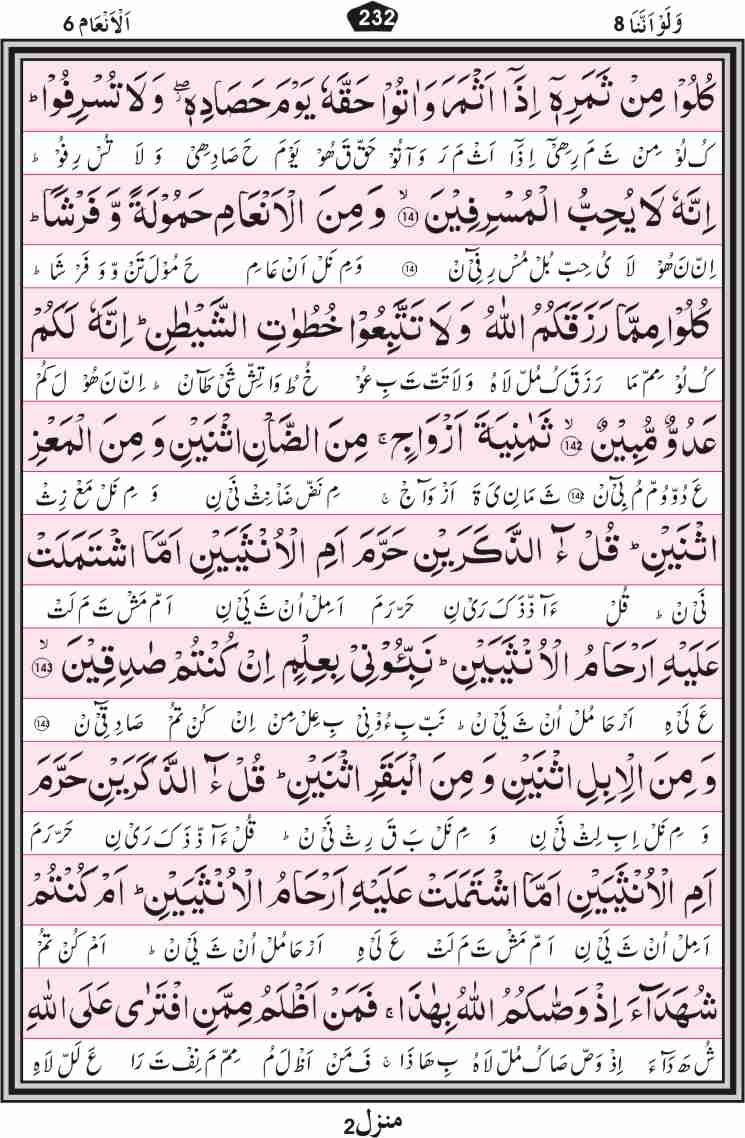 وَلَوْ اَنَّنَا 8 232 اَلْاَنْعَام 6
كُلُوْا مِنْ ثَمَرِهٖۤ اِذَاۤ اَثْمَرَ وَاٰتُوْا حَقَّهٗ يَوْمَ حَصَادِهٖ ۖ وَلَا تُسْرِفُوْا ؕ
كُ لُوْ مِنْ ثَ مَ رِهِیْٓ اِذَآ اَثْ مَ رَ وَ آتُوْ حَقْ قَ هُوْ يَوْمَ حَ صَادِهِیْ وَ لَا تُسْ رِفُوْ ؕ
اِنَّهٗ لَا يُحِبُّ الْمُسْرِفِيْنَ ۙ ١٤ وَ مِنَ الْاَنْعَامِ حَمُوْلَةً وَّ فَرْشًا ؕ
اِنْ نَ هُوْ لَا یُ حِبْ بُلْ مُسْ رِفِیْٓ نْ ١٤ وَ مِ نَلْ اَنْ عَامِ حَ مُوْلَ تَنْ وَّ وَ فَرْ شَا ؕ
كُلُوْا مِمَّا رَزَقَكُمُ اللّٰهُ وَلَا تَتَّبِعُوْا خُطُوٰتِ الشَّيْطٰنِ ؕ اِنَّهٗ لَكُمْ
كُ لُوْ مِمْ مَا رَزَقَ كُ مُلْ لَاهُ وَلَا تَتْ تَ بِ عُوْ خُ طُ وَاتِشْ شَیْ طَآنْ ؕ اِنْ نَ هُوْ لَ كُمْ
عَدُوٌّ مُّبِيْنٌ ۙ ١٤٢ ثَمٰنِيَةَ اَزْوَاجٍ ۚ مِنَ الضَّاْنِ اثْنَيْنِ وَ مِنَ الْمَعْزِ
عَ دُوْ وُمْ مُ بِیْٓ نْ ١٤٢ ثَ مَانِ یَ ةَ اَزْ وَآجْ ۚ مِ نَضْ ضَانِثْ نَیْ نِ وَ مِ نَلْ مَعْ زِثْ
اثْنَيْنِ ؕ قُلْ ءٰٓ الذَّكَرَيْنِ حَرَّمَ اَمِ الْاُنْثَيَيْنِ اَمَّا اشْتَمَلَتْ
نَیْ نْ ؕ قُلْ ءَآ ذْذَ كَ رَیْ نِ حَرْ رَمَ اَمِلْ اُنْ ثَ یَیْ نِ اَمْ مَشْ تَ مَ لَتْ
عَلَيْهِ اَرْحَامُ الْاُنْثَيَيْنِ ؕ نَبِّـُٔوْنِیْ بِعِلْمٍ اِنْ كُنْتُمْ صٰدِقِيْنَ ۙ ١٤٣
عَ لَیْ هِ اَرْحَا مُلْ اُنْ ثَ یَیْ نْ ؕ نَبْ بِ ءُوْنِیْ بِ عِلْ مِنْ اِنْ كُنْ تُمْ صَادِ قِیْٓ نْ ١٤٣
وَ مِنَ الْاِبِلِ اثْنَيْنِ وَ مِنَ الْبَقَرِ اثْنَيْنِ ؕ قُلْ ءٰٓ الذَّكَرَيْنِ حَرَّمَ
وَ مِ نَلْ اِبِ لِثْ نَیْ نِ وَ مِ نَلْ بَ قَ رِثْ نَیْ نْ ؕ قُلْ ءَآ ذْذَ كَ رَیْ نِ حَرْ رَمَ
اَمِ الْاُنْثَيَيْنِ اَمَّا اشْتَمَلَتْ عَلَيْهِ اَرْحَامُ الْاُنْثَيَيْنِ ؕ اَمْ كُنْتُمْ
اَمِلْ اُنْ ثَ یَیْ نِ اَمْ مَشْ تَ مَ لَتْ عَ لَیْ هِ اَرْحَا مُلْ اُنْ ثَ یَیْ نْ ؕ اَمْ كُنْ تُمْ
شُهَدَآءَ اِذْ وَصّٰىكُمُ اللّٰهُ بِهٰذَا ۚ فَمَنْ اَظْلَمُ مِمَّنِ افْتَرٰى عَلَى اللّٰهِ
شُ هَ دَآءَ اِذْ وَصْ صَاكُ مُلْ لَاهُ بِ هَاذَا ۚ فَ مَنْ اَظْ لَ مُ مِمْ مَ نِفْ تَ رَا عَ لَلْ لَاهِ
منزل2